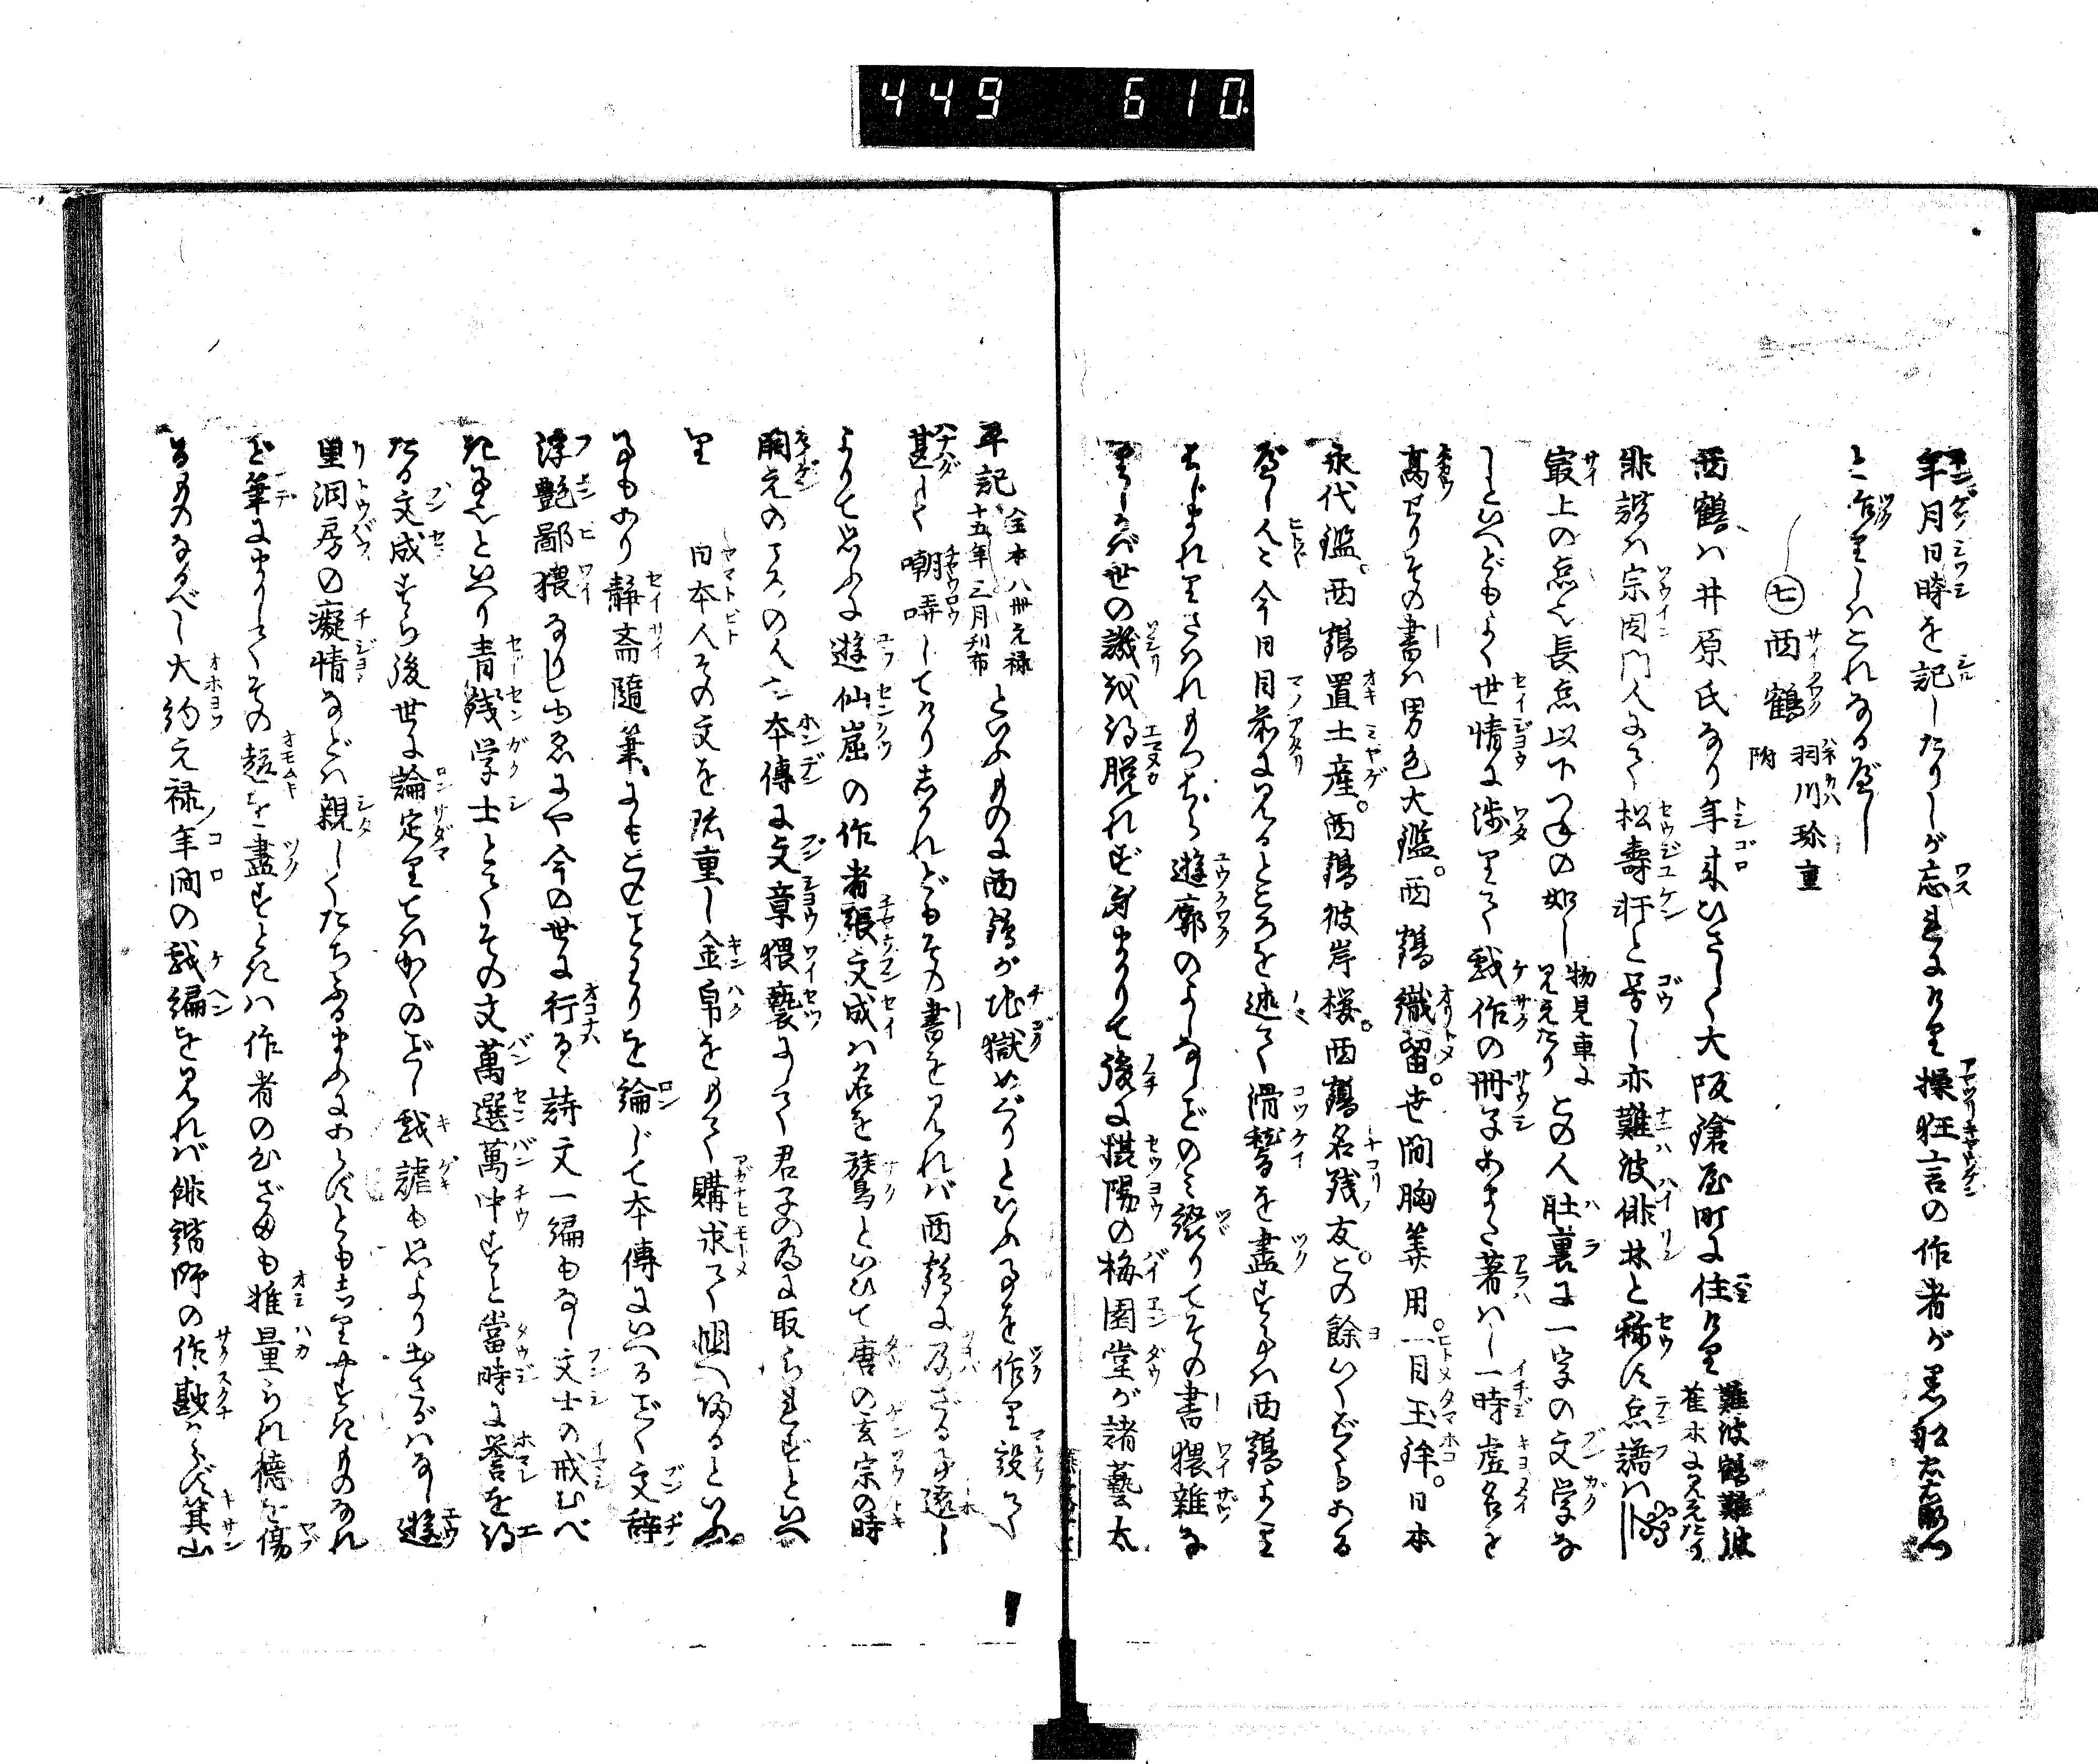 449 610
年月日時を記したりしが忘れにけり操狂言の作者が
と作りしはこれなるべし
㊆西鶴 附 羽川珍重
西鶴ハ井原氏なり年来ひさしく大阪鎗屋町に住けり 難波鶴難波雀ホに見えたり
俳諧ハ宗因門人にて松壽軒と号し亦難波俳林と称す点譜ハ
最上の点也長点以下つねの如し 物見車に見えたり この人肚裏に一字の文学な
しといへどもよく世情に渉りて戯作の冊子あまた著ハし一時虚名を
高せりその書ハ男色大鑑。西鶴織留。世間胸算用。一目玉鉾。日本
永代鑑。西鶴置土産。西鶴彼岸桜。西鶴名残友。この餘いくばくもある
べし人と今日目前に見るところを述て滑稽を盡すハ西鶴より
はじまれりされハもつぱら遊廓のよしなしごとのミ綴りてその書猥雑な
りしかば世の譏を得脱れず身まかりて後に摂陽の梅園堂が諸藝太
平記 全本八冊元禄十五年三月刊布 といふものに西鶴が地獄めぐりといふ事を作り設て
甚しく嘲哢してけりしかれどもその書を見れバ西鶴に及ざる事遠し
よりて思ふに遊仙崛の作者張文成ハ名を鷟といひて唐の玄宗の時
の人 本傳に文章猥褻にして君子の為に取られずといへ
り 日本人その文を珎重し金帛をもて購求て国へ帰るといふ。
事もあり静斎随筆にもこのことわりを論じて本傳にいへるごとく文辞
浮艶鄙猥なりしゆゑにや今の世に行るゝ詩文一編もなし文士の戒むべ
きことといへり青銭学士とてその文萬選萬中すと當時に誉を得
たる文成すら後世に論定りてハかくのごとし戯謔も思より出ざるハなし遊
里洞房の癡情などハ親しくたちふるまふにあらずともしりやすきものなれ
ど筆にまかしてその趣を盡すときハ作者のむざねも推量られ徳を傷
るものなるべし大約元禄年間の戯編を見れバ俳諧師の作尠からず箕山